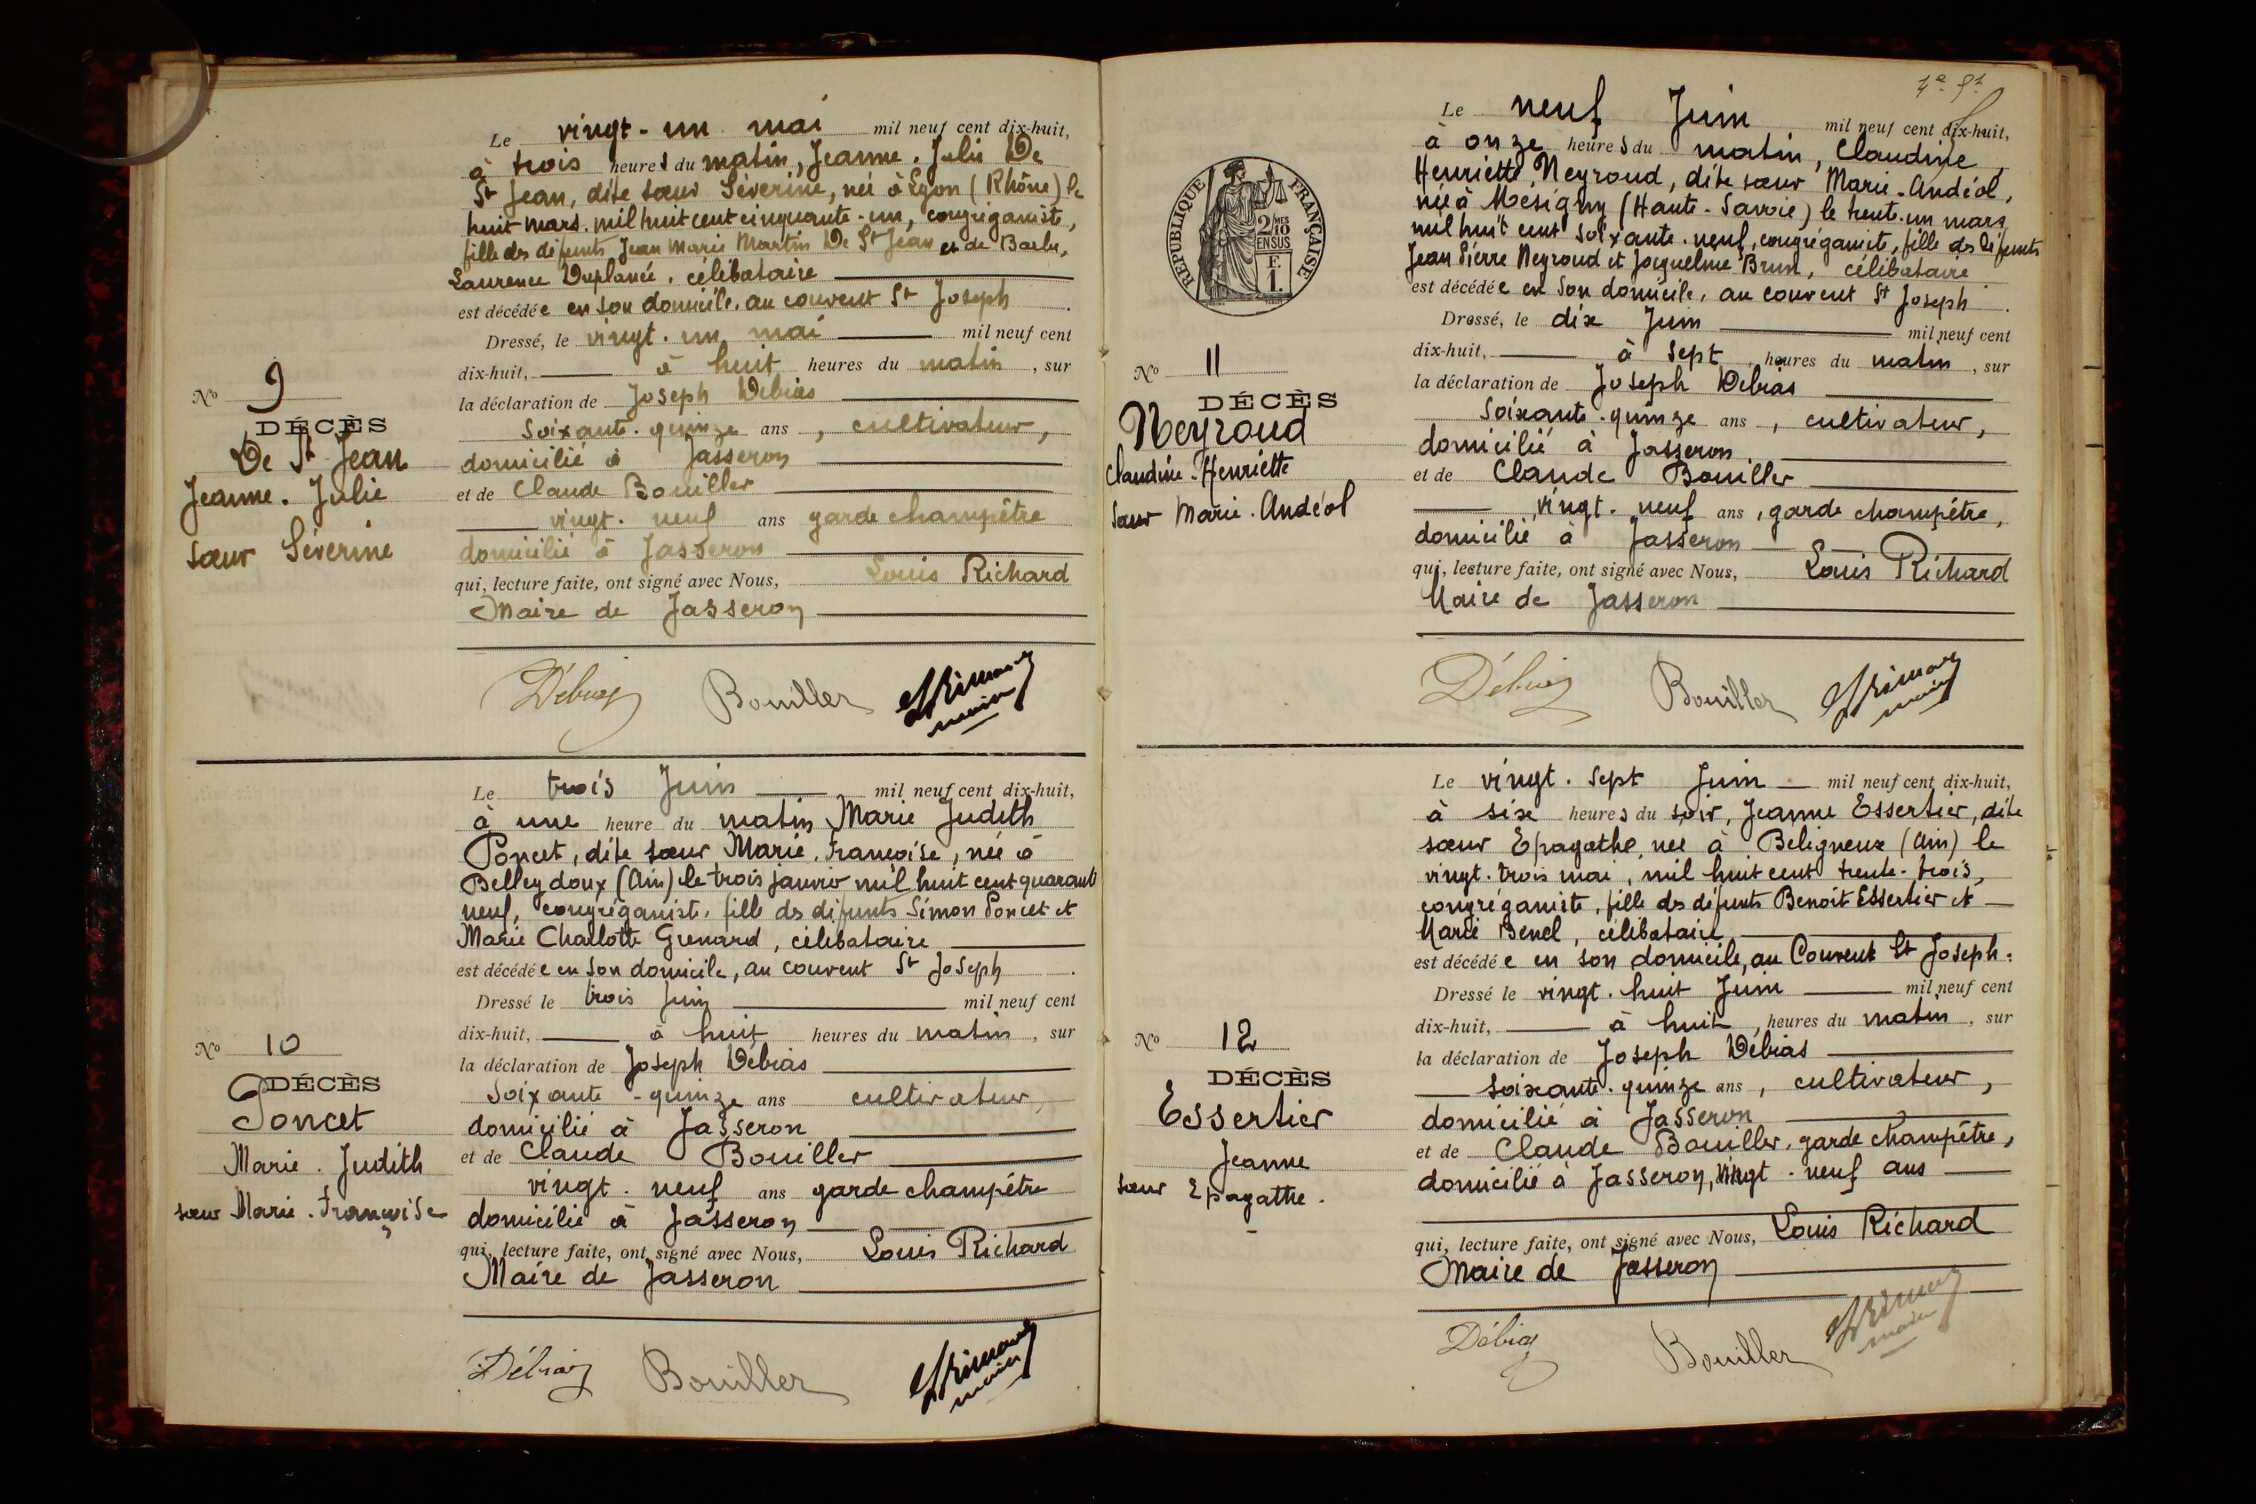 Le vingt-un mai mil neuf cent dix-huit,
à trois heures du matin, Jeanne. Julie De
St Jean, dite sœur Séverine, née à Lyon (Rhône) le
huit mars. mil huit cent cinquante-un, congréganiste,
fille des défunts Jean Marie Martin De St Jean et de Barbe,
Laurence Duplanée, célibataire
est décédée en son domicile, au couvent St Joseph.
Dressé, le vingt. un mai mil neuf cent
dix-huit, à huit heures du matin, sur
la déclaration de Joseph Débias
soixante. quinze ans, cultivateur,
domicilié à Jasseron
et de Claude Bouiller
vingt. neuf ans garde champêtre
domicilié à Jasseron
qui, lecture faite, ont signé avec Nous, Louis Richard
Maire de Jasseron
No 9
DÉCÈS
De St Jean
Jeanne. Julie
sœur Séverine
Débias Bouiller
maire
Le trois Juin mil neuf cent dix-huit,
à une heure du matin Marie Judith
Poncet, dite sœur Marie. Françoise, née à
Belleydoux (Ain) le trois janvier mil huit cent quarante
neuf, congréganiste. fille des défunts Simon Poncet et
Marie Charlotte Grenard, célibataire
est décédée en son domicile, au couvent St Joseph.
Dressé le trois Juin mil neuf cent
dix-huit, à huit heures du matin, sur
la déclaration de Joseph Débias
Soixante-quinze ans cultivateur,
domicilié à Jasseron
et de Claude Bouiller
vingt. neuf ans garde champêtre
domicilié à Jasseron
qui, lecture faite, ont signé avec Nous, Louis Richard
Maire de Jasseron
No 10
DÉCÈS
Poncet
Marie. Judith
sœur Marie. Françoise
Débias Bouiller
maire
RÉPUBLIQUE FRANÇAISE
2/10 MES
EN SUS
F.
1.
Le neuf Juin mil neuf cent dix-huit,
à onze heures du matin, Claudine,
Henriette, Neyroud, dite sœur Marie-Andéol,
née à Mésigny (Haute-Savoie) le trente-un mars
mil huit cent soixante. neuf, congréganiste, fille des défunts
Jean Pierre Neyroud et Jacqueline Brun, célibataire
est décédée en son domicile, au couvent St Joseph.
Dressé, le dix Juin mil neuf cent
dix-huit, à sept, heures du matin, sur
la déclaration de Joseph Débias
soixante. quinze ans, cultivateur,
domicilié à Jasseron
et de Claude Bouiller
vingt. neuf ans, garde champêtre,
domicilié à Jasseron
qui, lecture faite, ont signé avec Nous, Louis Richard
Maire de Jasseron
No 11
DÉCÈS
Neyroud
Claudine-Henriette
sœur Marie. Andéol
Débias Bouiller
maire
Le vingt. sept Juin mil neuf cent dix-huit,
à six heures du soir, Jeanne Essertier, dite
sœur Epagathe, née à Beligneux (Ain) le
vingt. trois mai, mil huit cent trente-trois,
congréganiste, fille des défunts Benoît Essertier et
Marie Benel, célibataire
est décédée en son domicile, au Couvent St Joseph.
Dressé le vingt. huit Juin mil neuf cent
dix-huit, à huit, heures du matin, sur
la déclaration de Joseph Débias
soixante. quinze ans, cultivateur,
domicilié à Jasseron
et de Claude Bouiller, garde champêtre,
domicilié à Jasseron, vingt. neuf ans
qui, lecture faite, ont signé avec Nous, Louis Richard
Maire de Jasseron
No 12
DÉCÈS
Essertier
Jeanne
sœur Epagathe.
Débias Bouiller
maire